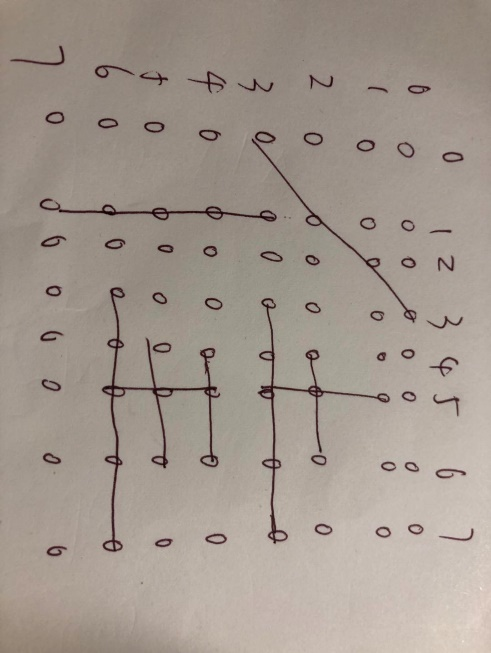 0 1 2 3 4 5 6 7
0 0 0 0 0 0 0 0 0
1 0 0 0 0 0 0 0 0
2 0 0 0 0 0 0 0 0
3 0 0 0 0 0 0 0 0
4 0 0 0 0 0 0 0 0
5 0 0 0 0 0 0 0 0
6 0 0 0 0 0 0 0 0
7 0 0 0 0 0 0 0 0